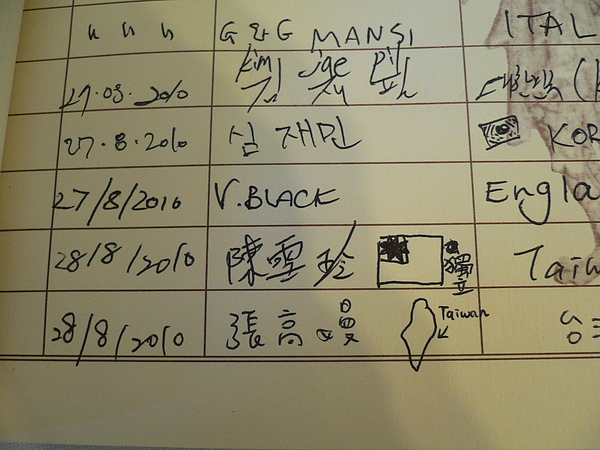 " " " G & G MANSI ITAL
Kim Jae Pil
27.08.2010 김 재 필 대한민국 (K
27.8.2010 심재민 KOR
27/8/2010 V.BLACK Engla
28/8/2010 陳雪玲 獨立 Taiw
28/8/2010 張高嫚 Taiwan 台